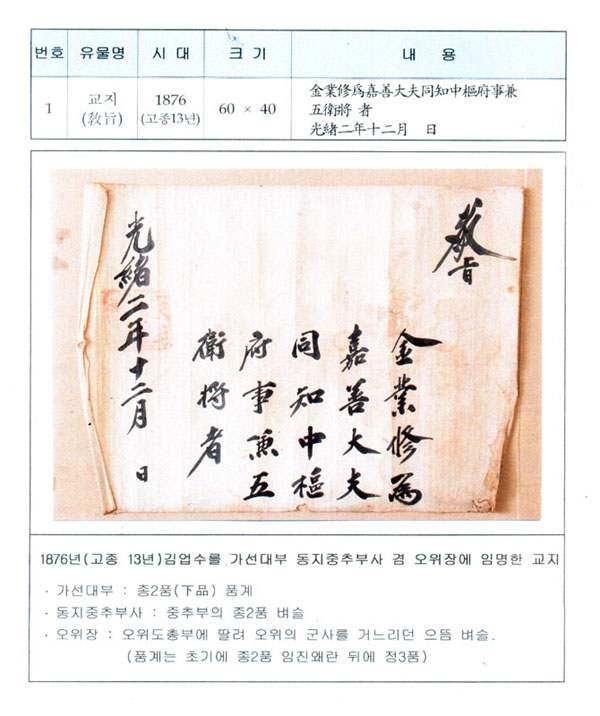 번호 유물명 시 대 크 기 내 용
1 교지 (敎旨) 1876 (고종13년) 60 × 40 金業修爲嘉善大夫同知中樞府事兼
五衛將 者
光緖二年十二月 日
敎旨
金業修爲
嘉善大夫
同知中樞
府事兼五
衛將者
光緖二年十二月 日
1876년(고종 13년)김업수를 가선대부 동지중추부사 겸 오위장에 임명한 교지
· 가선대부 : 종2품(下品) 품계
· 동지중추부사 : 중추부의 종2품 벼슬
· 오위장 : 오위도총부에 딸려 오위의 군사를 거느리던 으뜸 벼슬.
(품계는 초기에 종2품 임진왜란 뒤에 정3품)